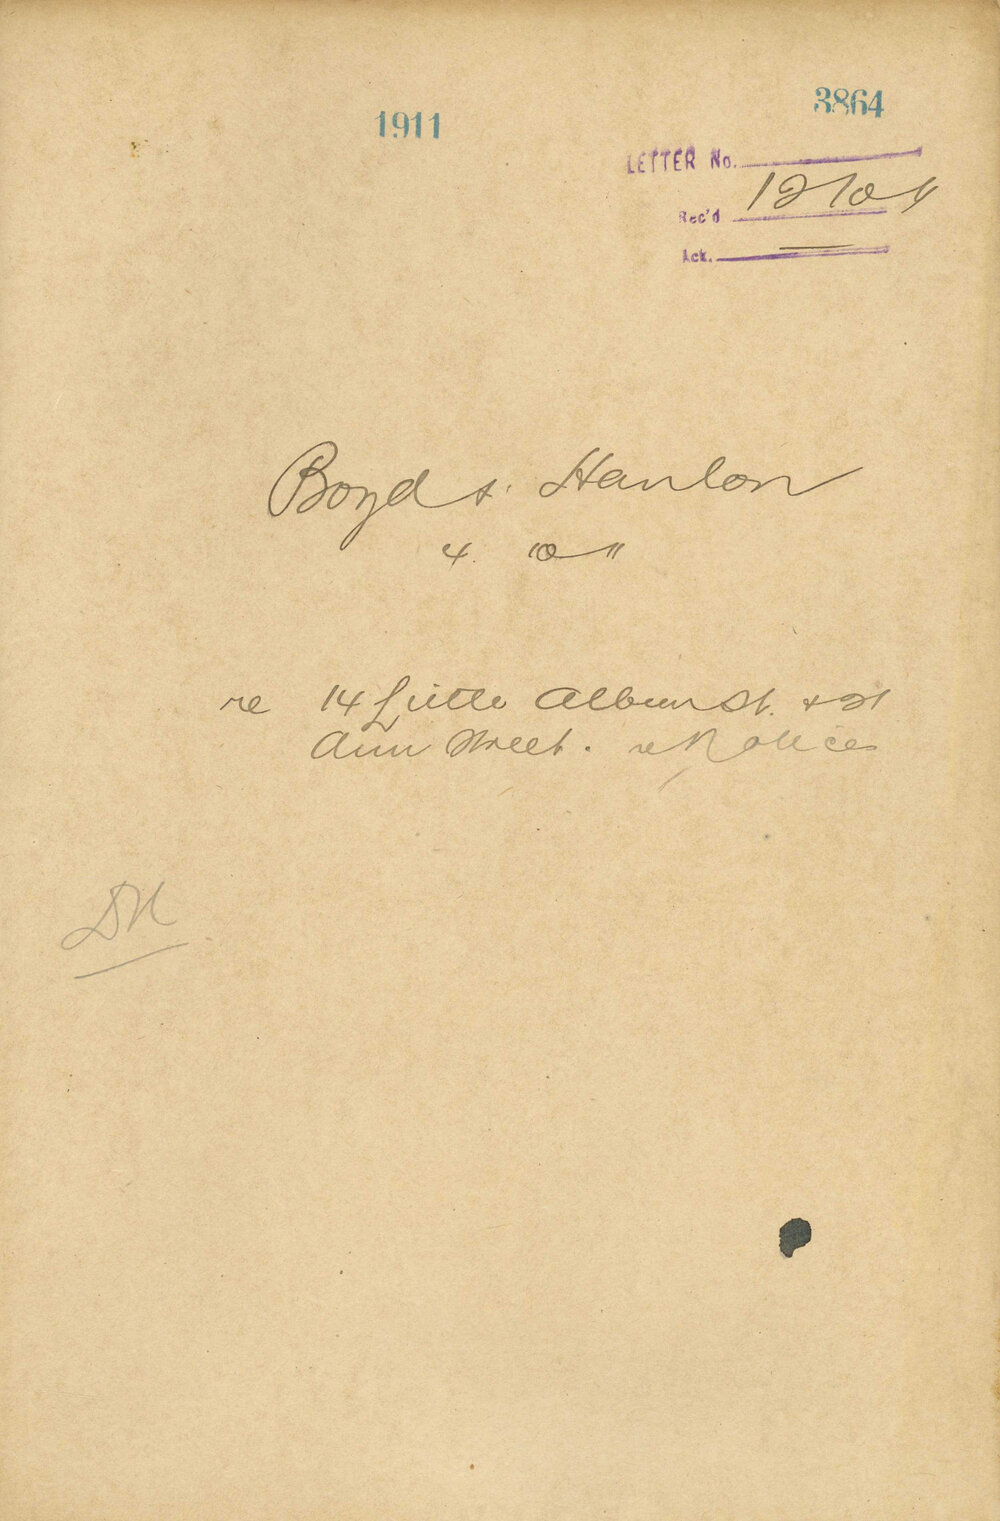 1911
3864
LETTER No.
Rec'd 12/10/
Ack. —
Boyd & Hanlon
4 "10"
re 14 Little Albion St. & 21
Ann Street. re Notices